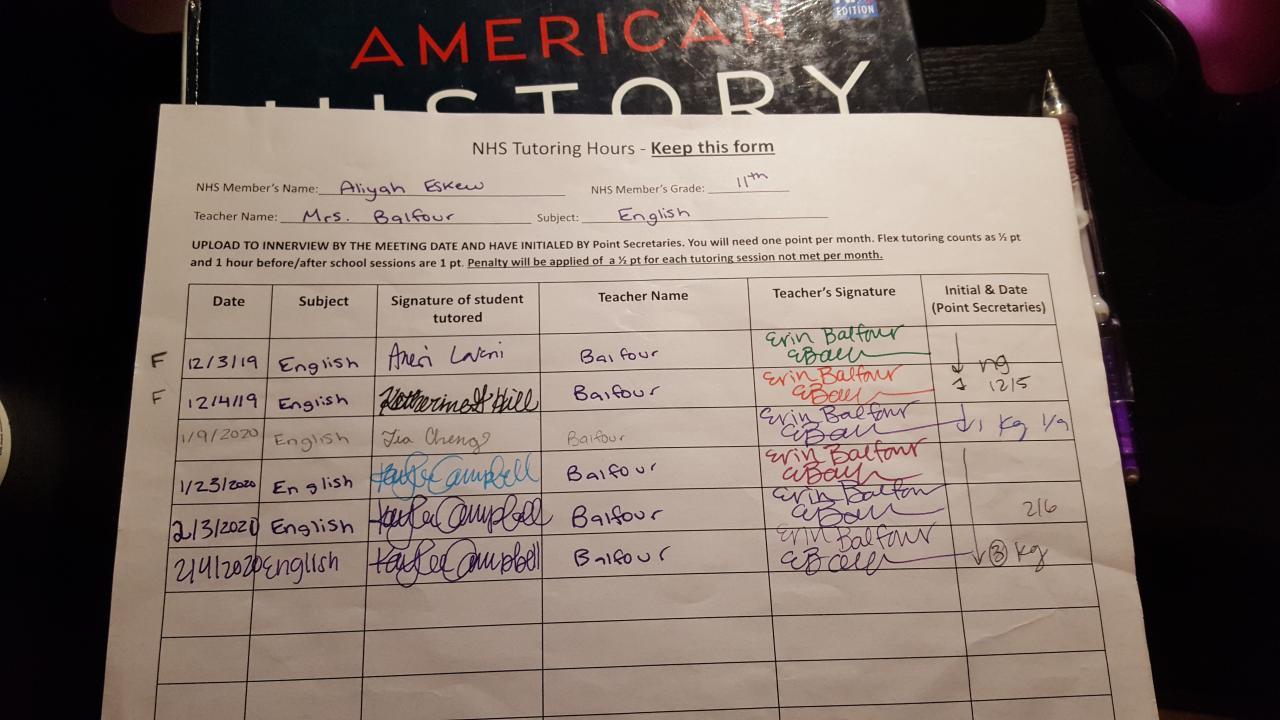 EDITION
AMERICAN
HISTORY
NHS Tutoring Hours - Keep this form
NHS Member's Name: Aliyah Eskew NHS Member's Grade: 11th
Teacher Name: Mrs. Balfour Subject: English
UPLOAD TO INNERVIEW BY THE MEETING DATE AND HAVE INITIALED BY Point Secretaries. You will need one point per month. Flex tutoring counts as ½ pt
and 1 hour before/after school sessions are 1 pt. Penalty will be applied of a ½ pt for each tutoring session not met per month.
Date Subject Signature of student tutored Teacher Name Teacher's Signature Initial & Date (Point Secretaries)
F 12/3/19 English Balfour Erin Balfour ng
F 12/4/19 English Katherine Hill Balfour Erin Balfour 1 12/5
1/9/2020 English Tia Cheng Balfour Erin Balfour 1 Kg 1/9
1/23/2020 English Kaylee Campbell Balfour Erin Balfour
2/3/2020 English Kaylee Campbell Balfour Erin Balfour 2/6
2/4/2020 English Kaylee Campbell Balfour Erin Balfour 3 Kg